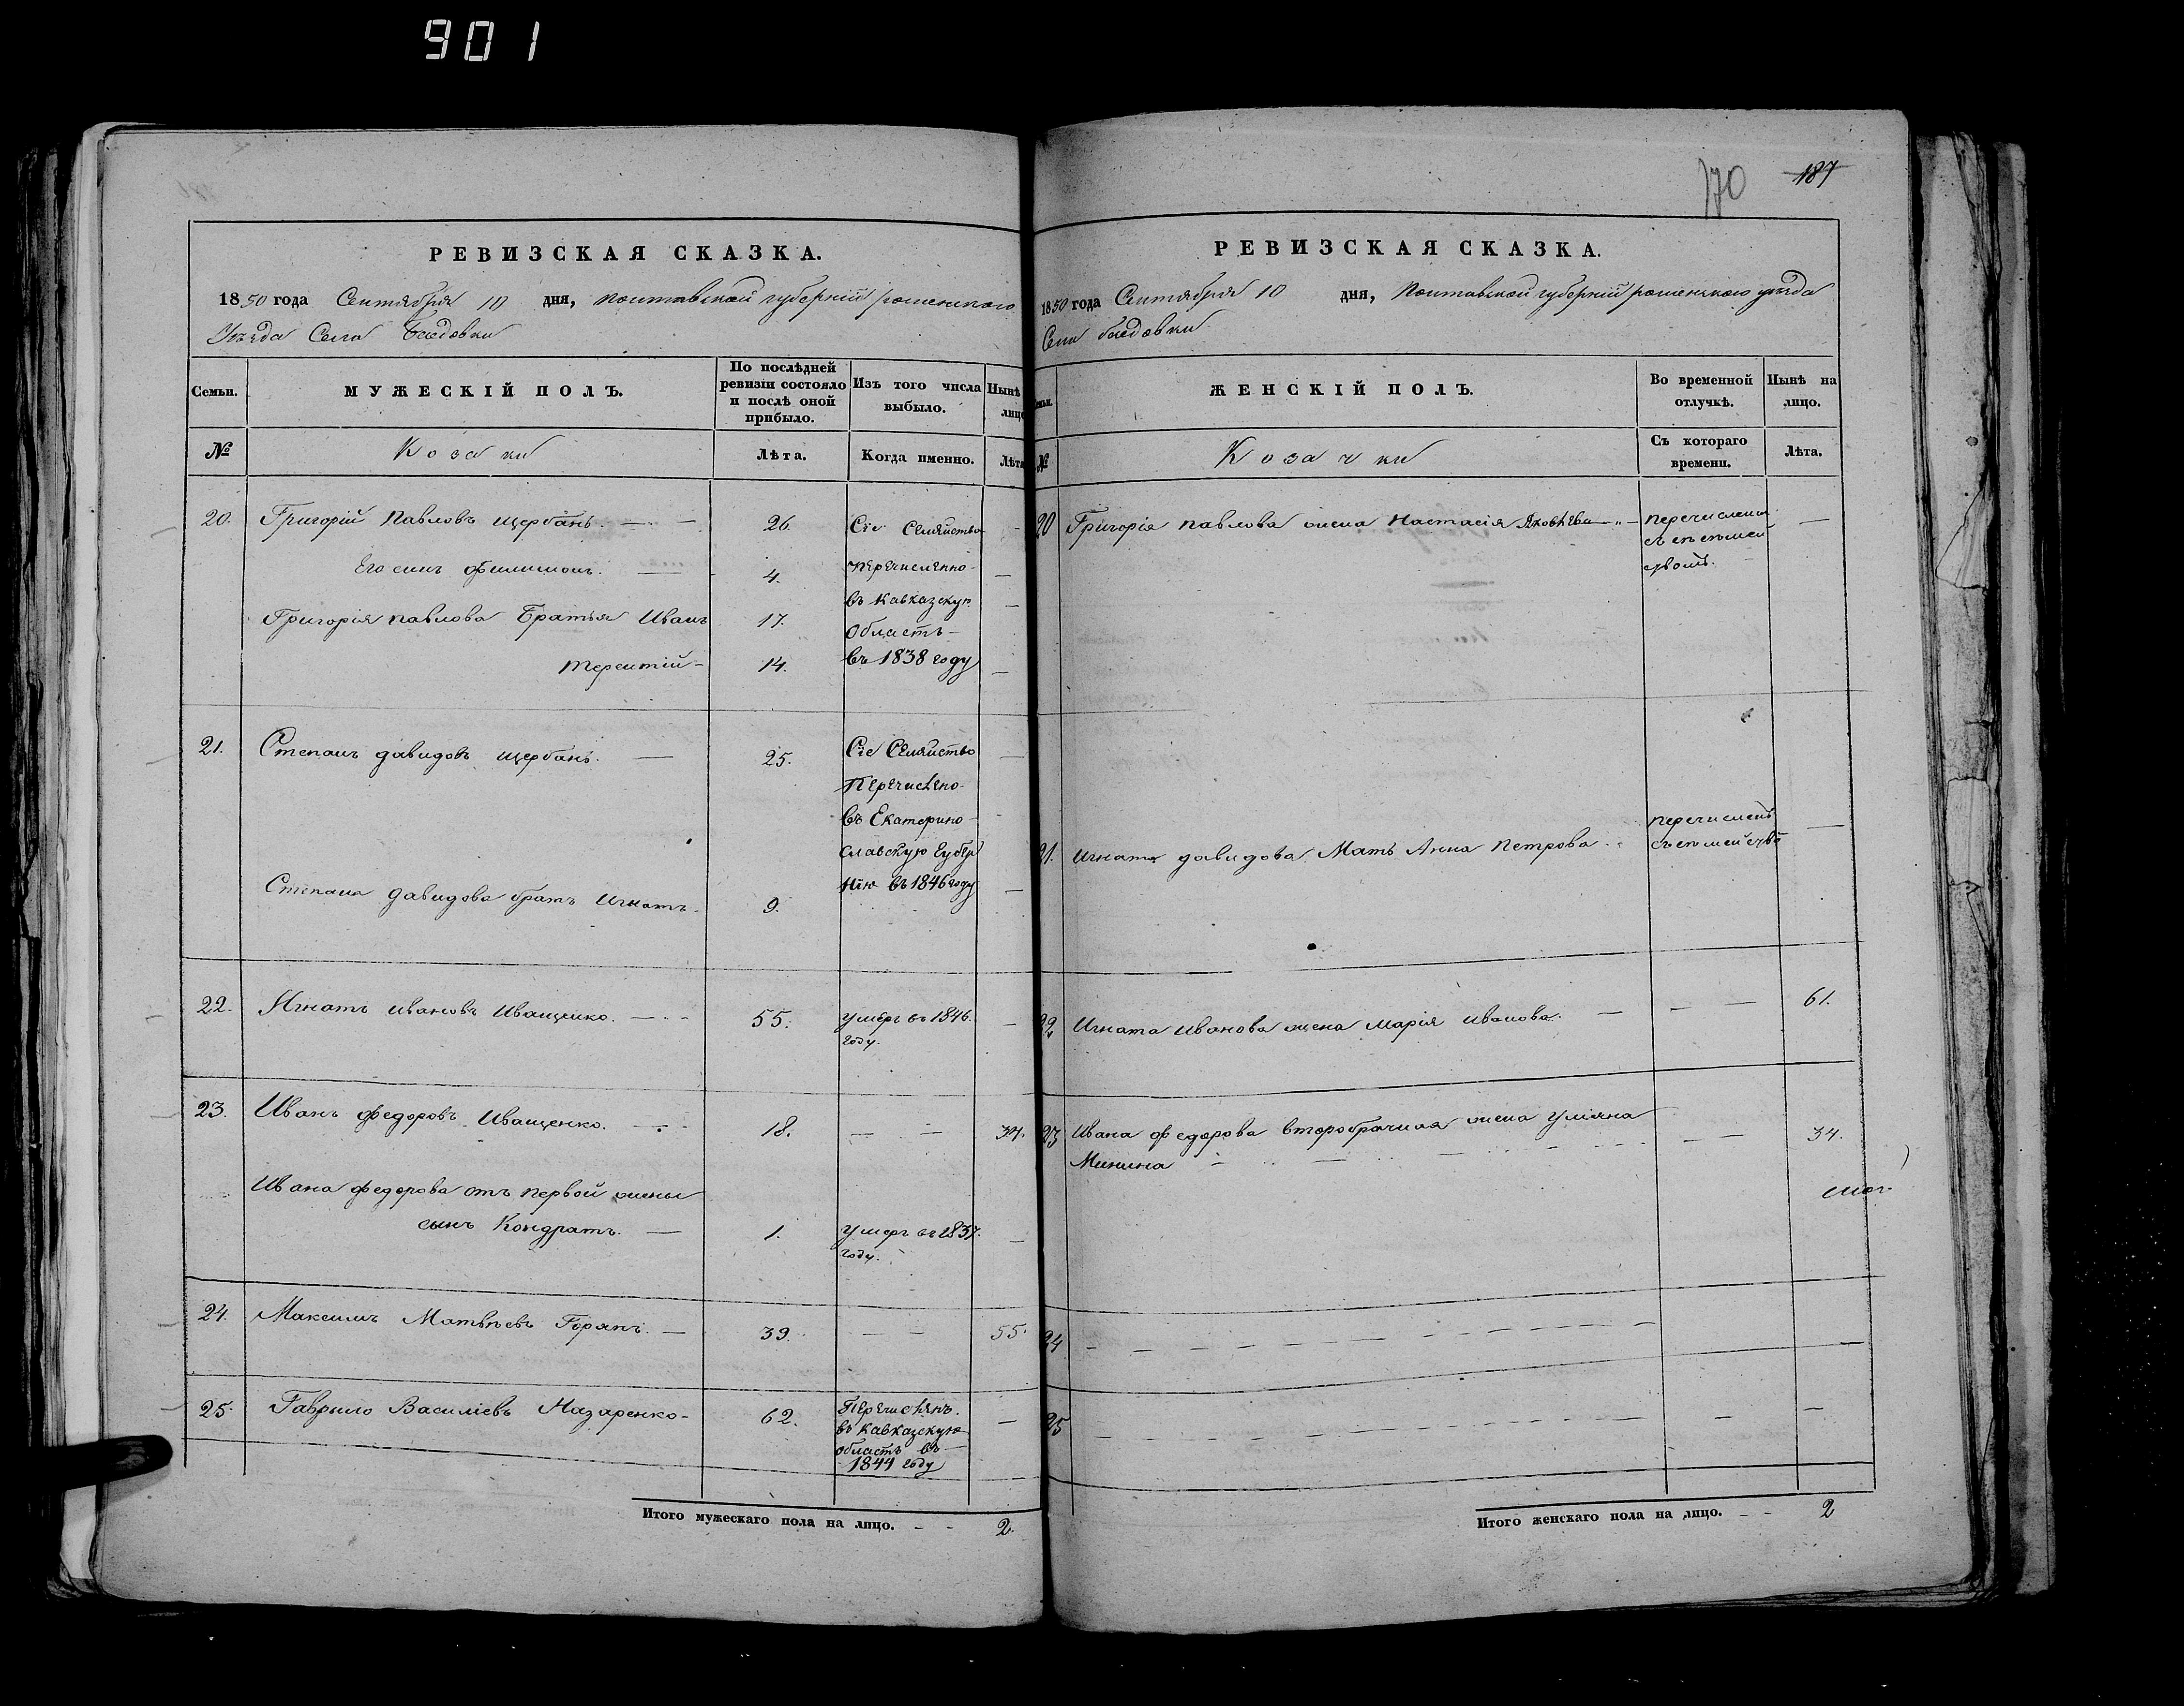 901
РЕВИЗСКАЯ СКАЗКА.
1850 года Сентября 10 дня, Полтавской губерніи роменского
Уѣзда Села Басовки
Семьи.
МУЖЕСКІЙ ПОЛЪ.
По послѣдней ревизіи состояло и послѣ оной прибыло.
Изъ того числа выбыло.
Нынѣ
лицо
№
Козаки
Лѣта.
Когда именно.
Лѣта
20. Григорій Павловъ щербань. 26. Сіе Семяйство
Его сынъ Филимонъ. 4. перечисленно
въ Кавказскую
Григорія павлова Братья Иванъ 17. Область
терентій 14. въ 1838 году
21. Степанъ давидовъ щербань. 25. Сіе Семяйство
Перечислено
въ Екатерино
славскую Губер
нію въ 1846 году
Степана давидова братъ Игнатъ. 9.
22. Игнатъ ивановъ Иващенко. 55. умеръ въ 1846.
году.
23. Иванъ федоровъ Иващенко. 18. 34.
Ивана федорова отъ первой жены
сынъ Кондратъ. 1. умеръ въ 1837.
году.
24. Максимъ Матвѣевъ 39. 55.
25. Гаврило Василіевъ Назаренко 62. Перечисленъ.
въ кавказскую
область въ
1844 году
Итого мужескаго пола на лицо. 2.
170 187
РЕВИЗСКАЯ СКАЗКА.
1850 года Сентября 10 дня, Полтавской губерніи роменского уѣзда
Села басовки
№
ЖЕНСКІЙ ПОЛЪ.
Во временной отлучкѣ.
Нынѣ на лицо.
Козачки
Съ котораго времени.
Лѣта.
20 Григорія павлова жена Настасія Яковлева перечислена
съ семей
ствомъ.
21. Игната давидова Мать Анна Петрова перечисленъ
съ семейство
22 Игната иванова жена марія иванова. 61.
23 Ивана федорова второбрачная жена уліяна 34.
Минина
24
25
Итого женскаго пола на лицо. 2